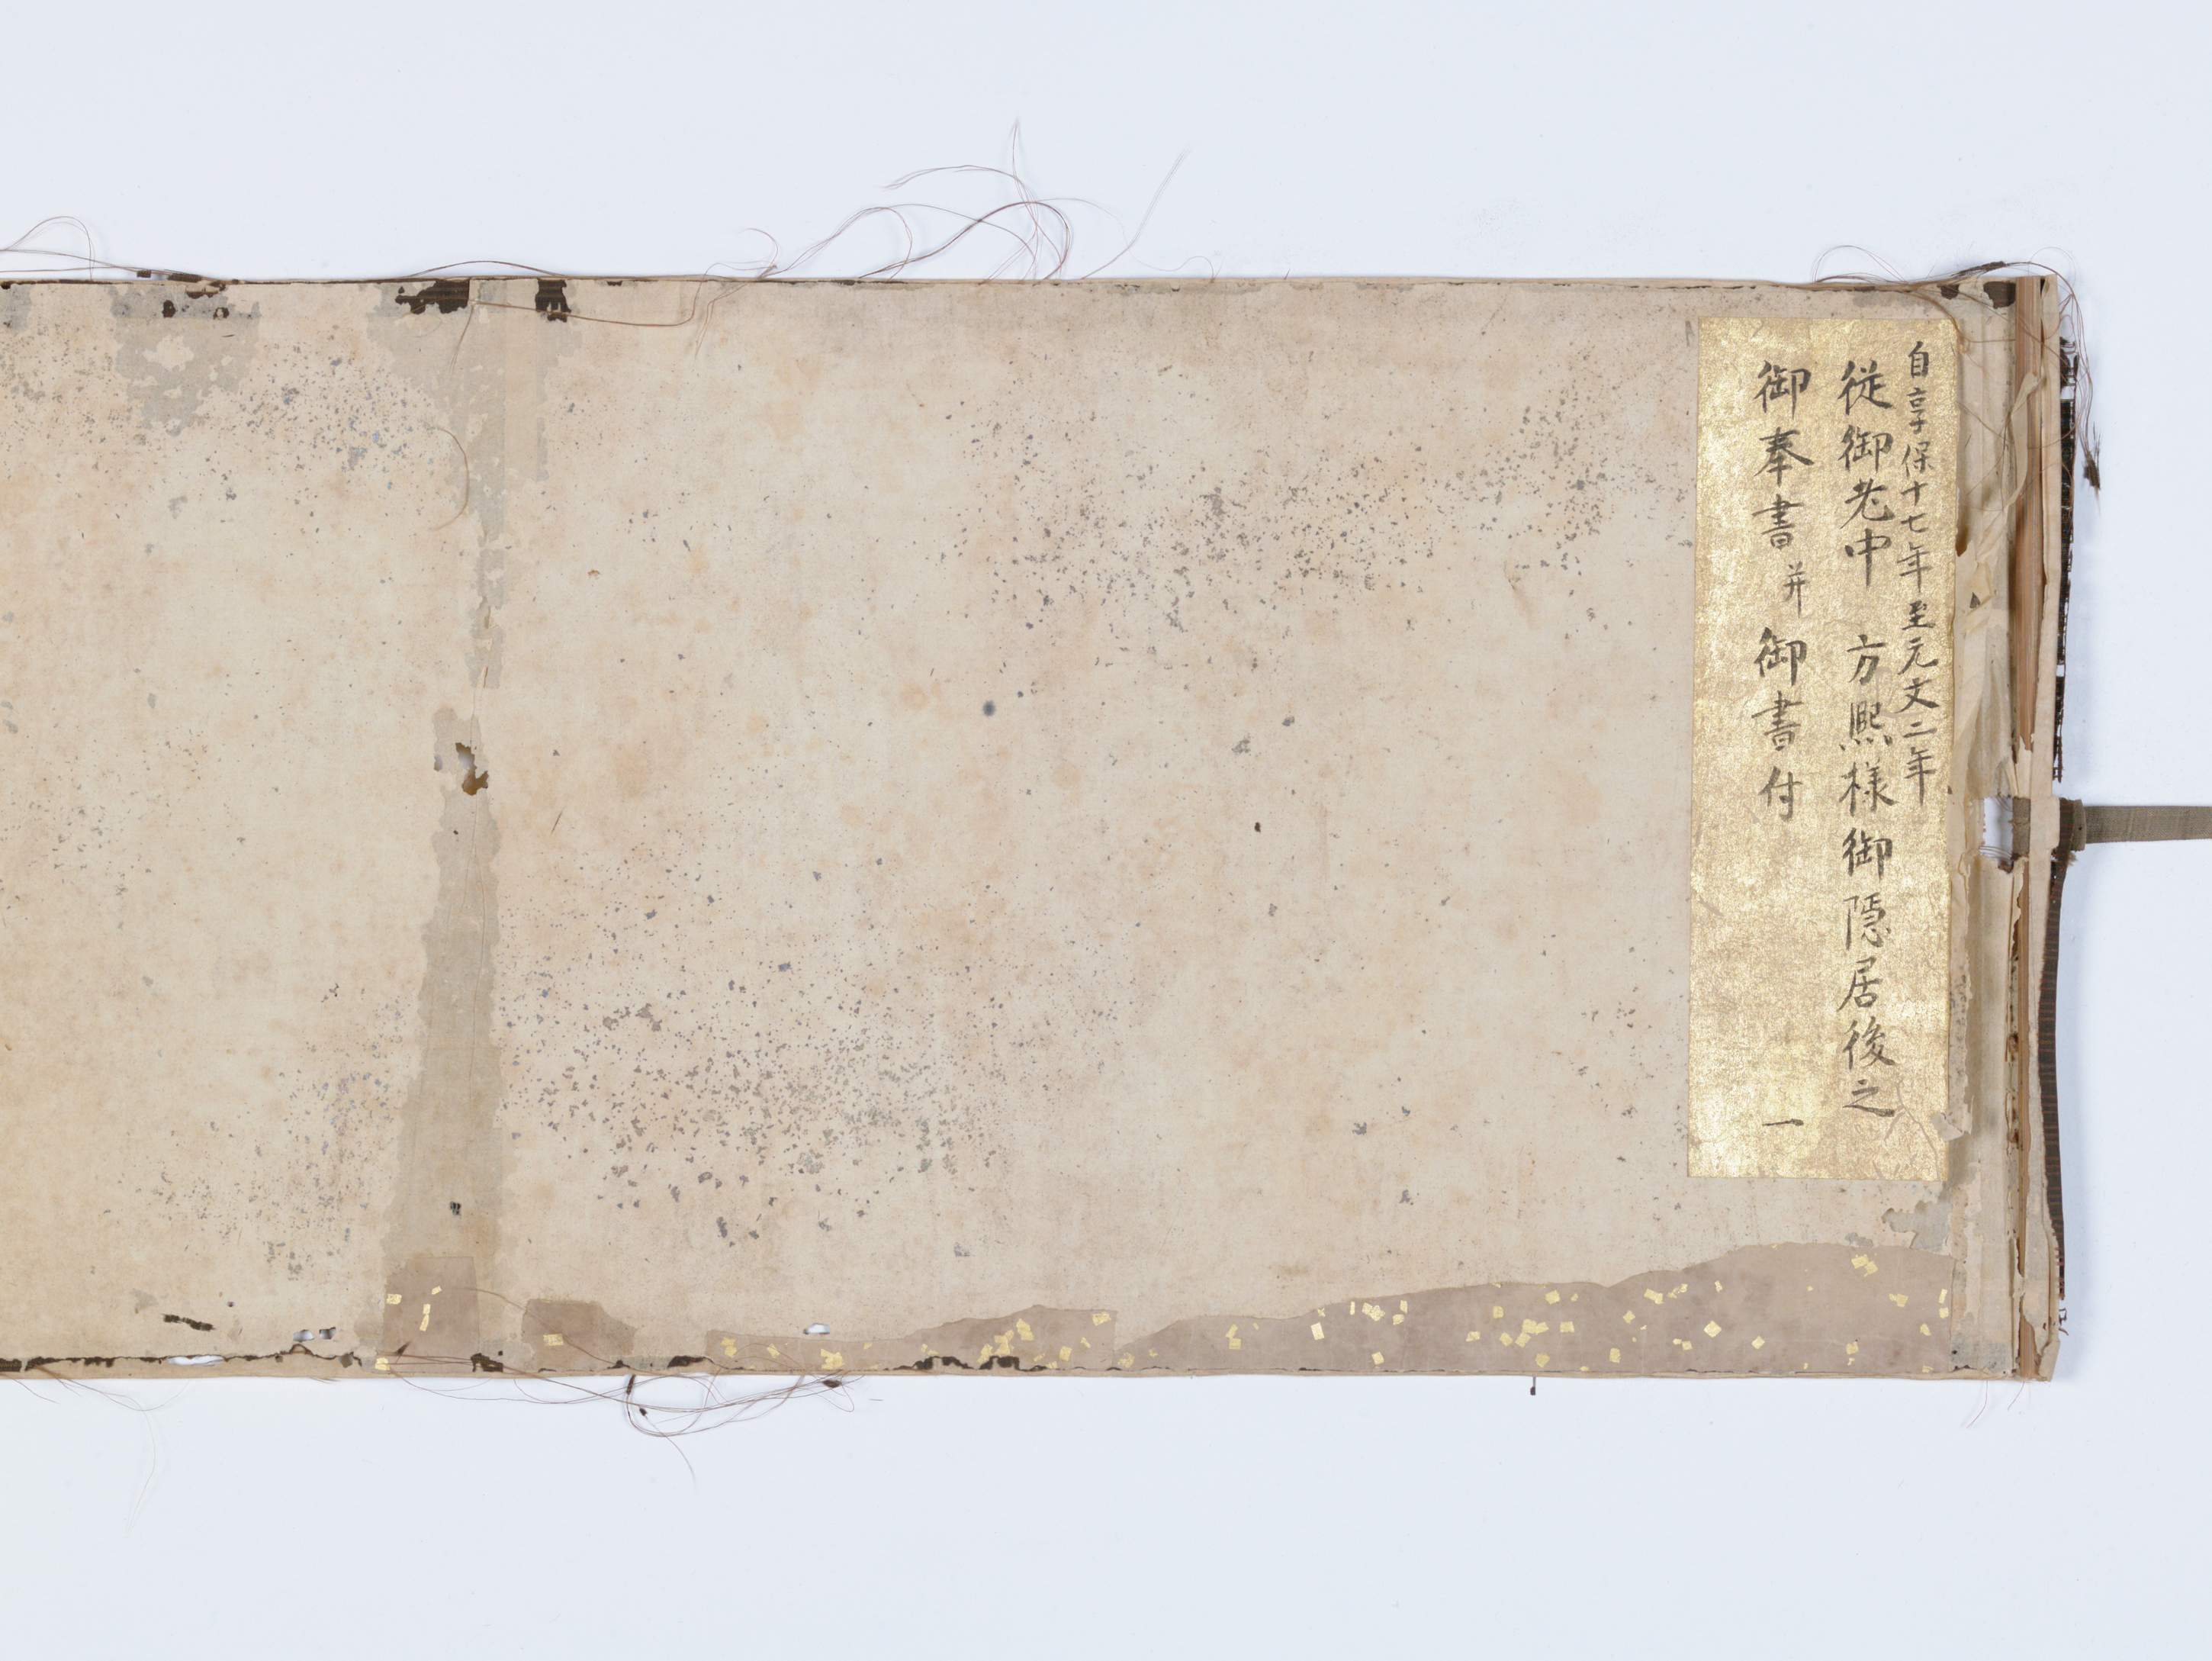 自享保十七年至元文二年
従御老中　方熈様御隠居後之
御奉書并御書付　一